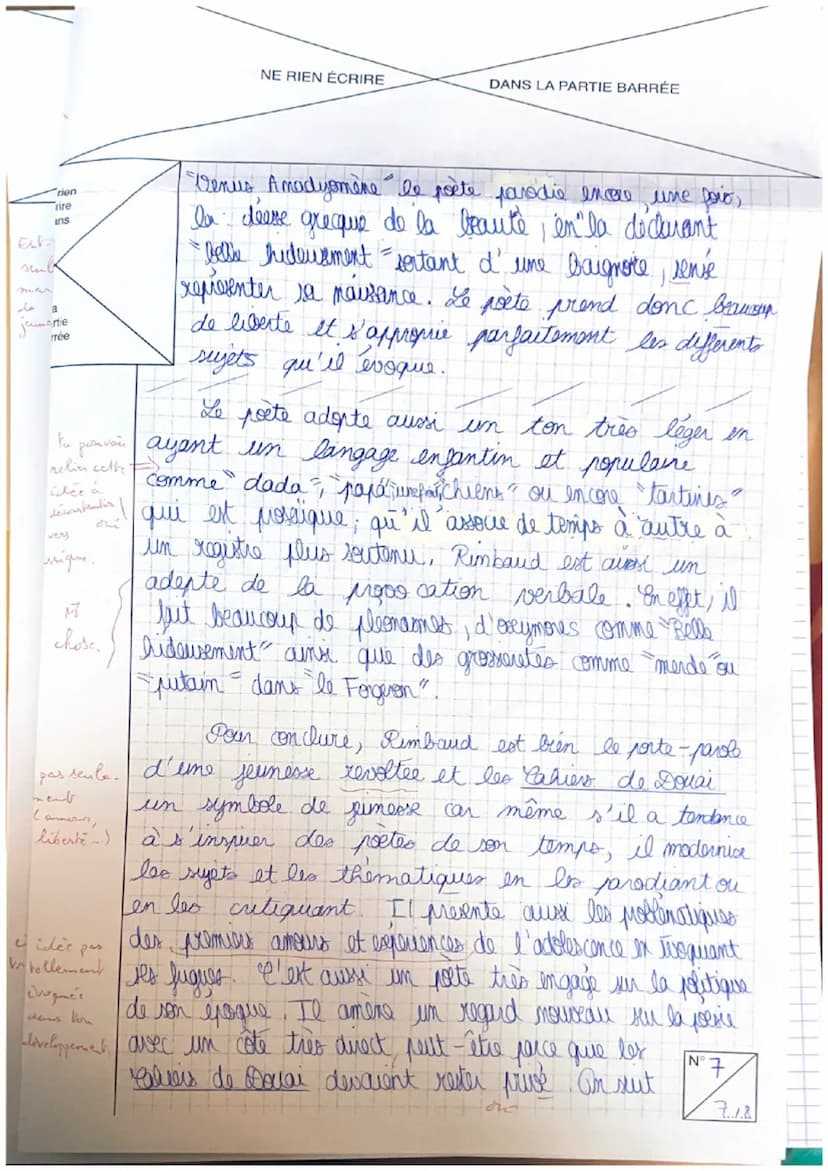 NE RIEN ÉCRIRE
DANS LA PARTIE BARRÉE
rien
rire
ans
a
rtie
rrée
"Venus Anadyomène" le poète parodie encore une fois,
la déesse grecque de la beauté, en la déclarant
"Belle hideusement" sortant d'une baignoire, sensé
représenter sa naissance. Le poète prend donc beaucoup
de liberte et s'approprie parfaitement les differents
sujets qu'il évoque.
Le poète adopte aussi un ton très léger en
ayant un langage enfantin et populaire
comme "dada", "papa", chiens" ou encore "tartines"
qui est prosaïque, qu'il associe de temps à autre à
un registre plus soutenu. Rimbaud est aussi un
adepte de la provocation verbale. En effet, il
fait beaucoup de pleonasmes, d'oxymores comme "Belle
hideusement" ainsi que des grossieretés comme "merde" ou
"putain" dans "le Forgeron".
Pour conclure, Rimbaud est bien le porte-parole
d'une jeunesse revoltée et les Cahiers de Douai
un symbole de jeunesse car même s'il a tendance
à s'inspirer des poètes de son temps, il modernise
les sujets et les thématiques en les parodiant ou
en les critiquant. Il présente aussi les problématiques
des premiers amours et expériences de l'adolescence en évoquant
ses fugues. C'est aussi un poète très engagé sur la politique
de son époque. Il amène un regard nouveau sur la poésie
avec un côté très direct, peut-être parce que les
Cahiers de Douai devaient rester privé. On suit
Est-
seul
mar
de
jeun
tu pouvais
relier cette
idée à
déconstruction
vers
M
chose.
pas seule-
ment
(amour,
liberté -)
idée pas
réellement
évoquée
dans ton
développement
N° 7
7.1.8